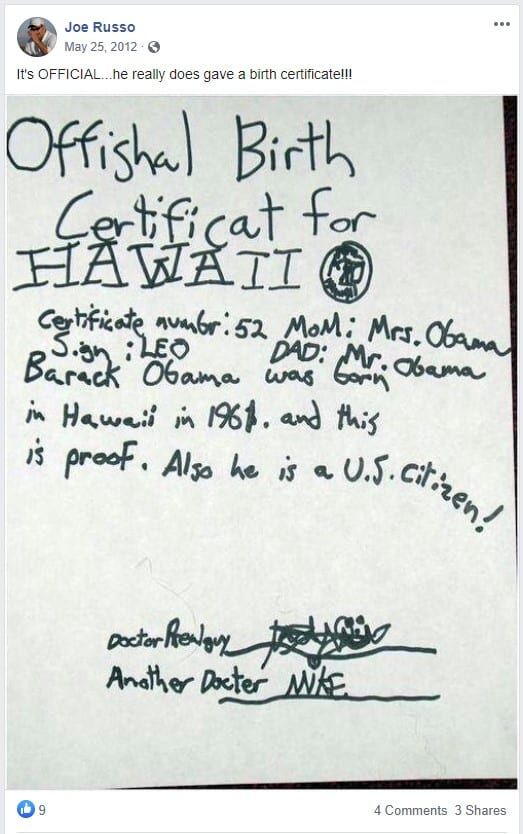 Joe Russo
May 25, 2012
It's OFFICIAL...he really does gave a birth certificate!!!
Offishal Birth
Certificat for
HAWAII
Certificate numbr: 52 MoM: Mrs. Obama
Sign: LEO DAD: Mr. Obama
Barack Obama was born
in Hawaii in 1961. and this
is proof. Also he is a U.S. citizen!
Doctor Realguy
Another Docter MIKE
9
4 Comments 3 Shares